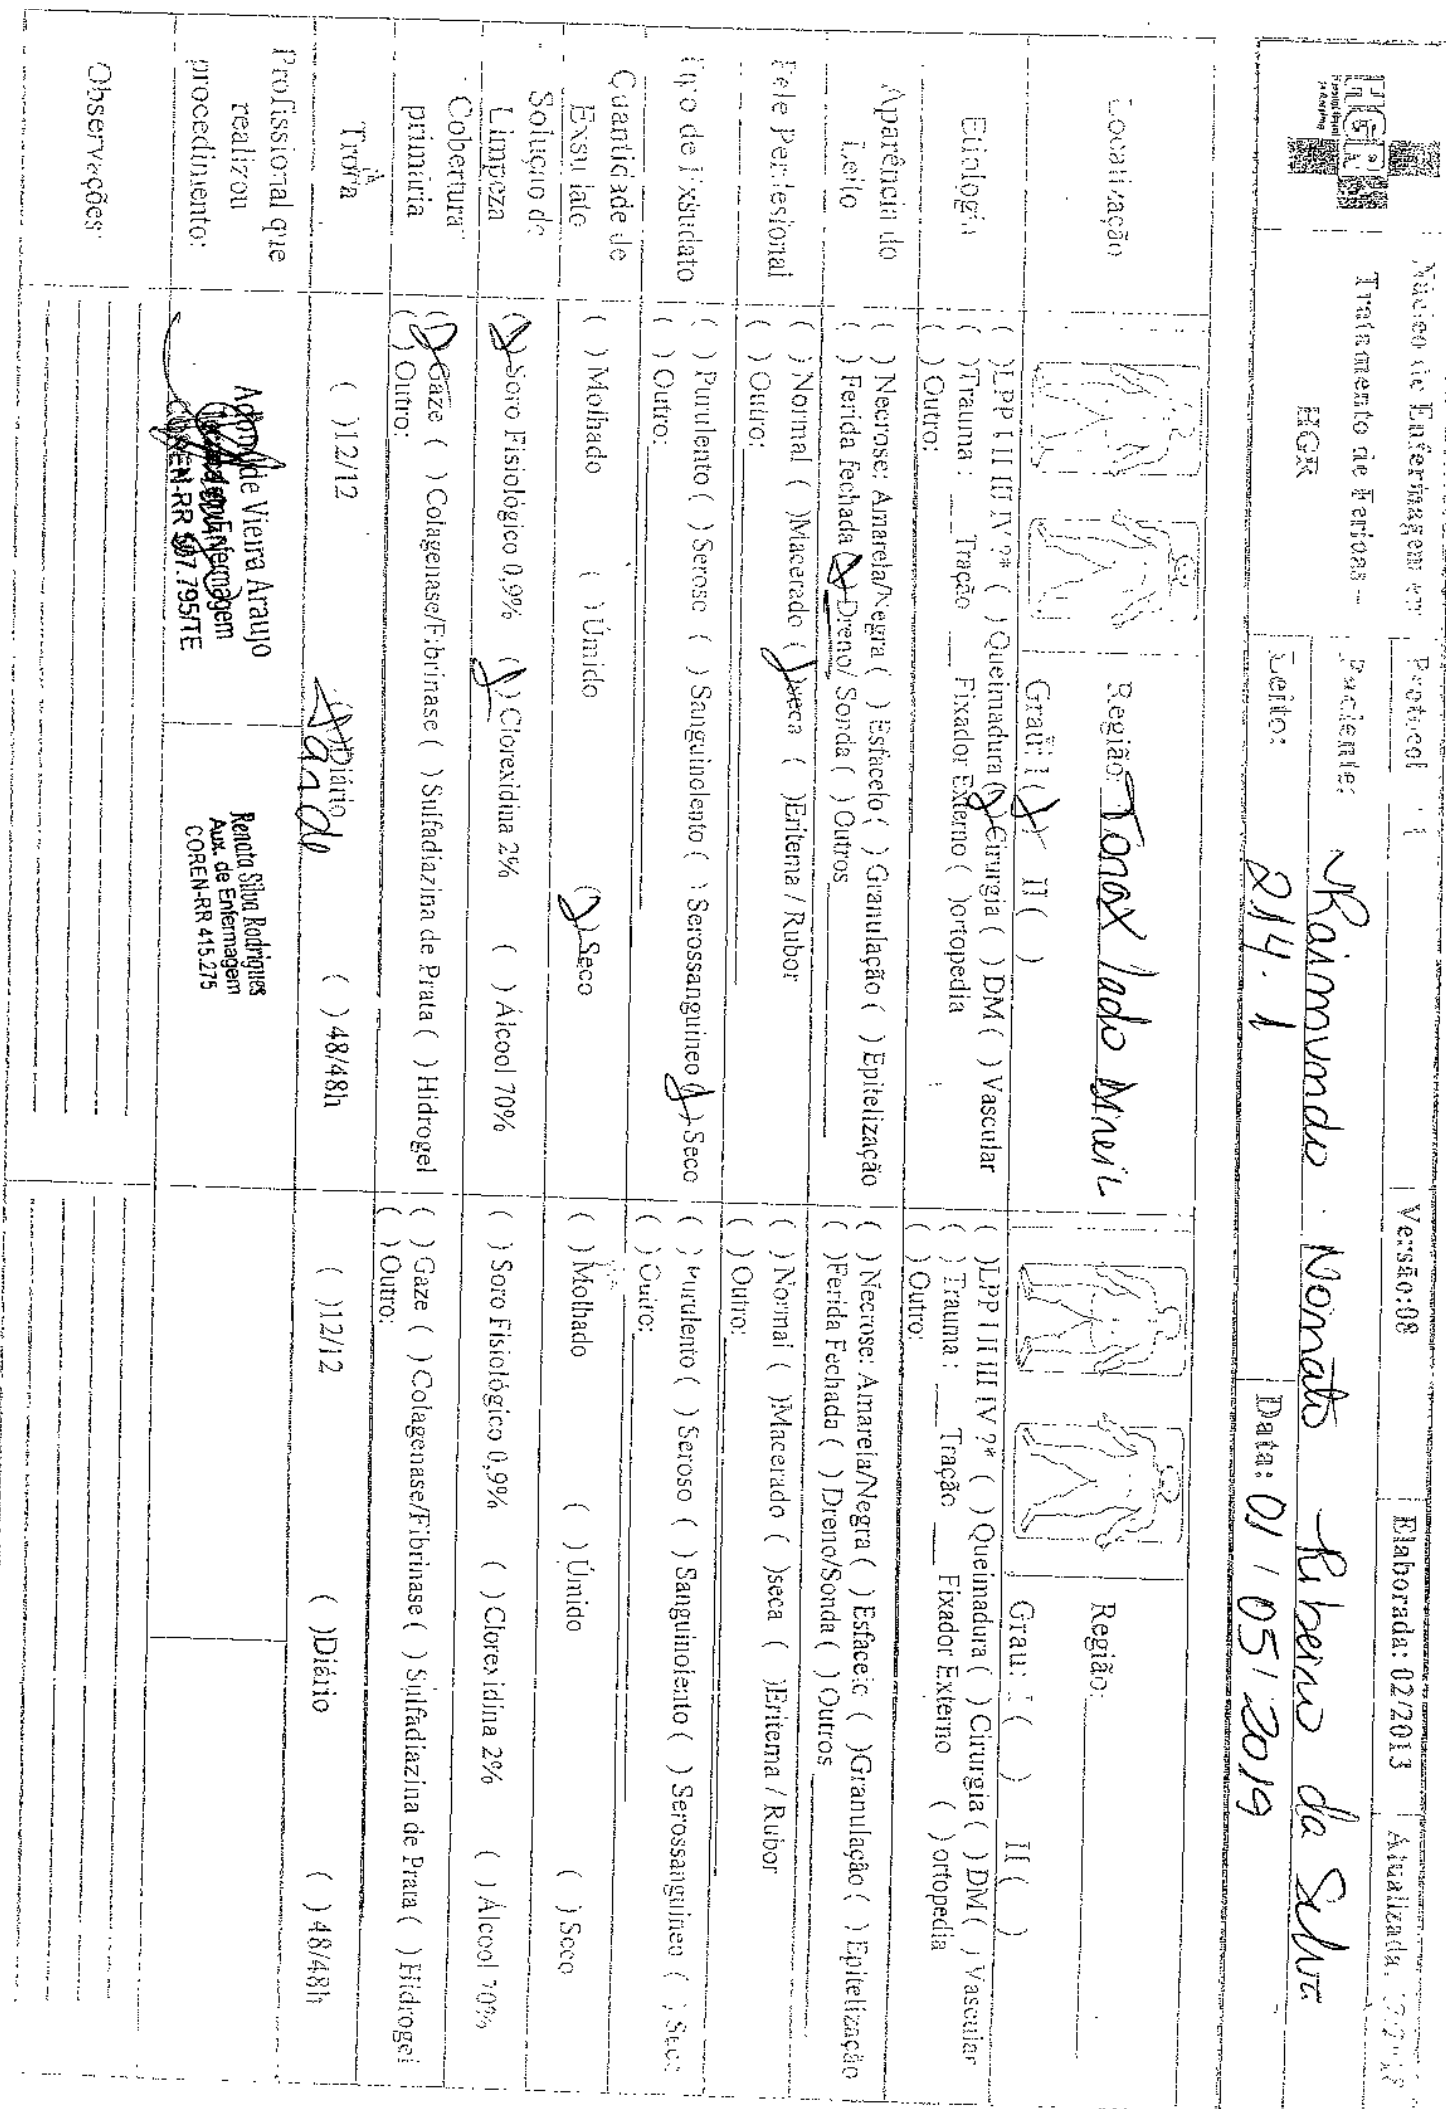 HGR
Núcleo de Enfermagem em
Tratamento de Feridas –
HGR
Protocol
Versão:08
Elaborada: 02/2013
Atualizada:
Paciente: Raimundo Nonato Ribeiro da Silva
Leito: 214.1
Data: 01 / 05 / 2019
Localização
Região: Torax lado
Grau: I ( ) II ( )
Região:
Grau: I ( ) II ( )
Etiologia
( )LPP I II III IV ?* ( ) Queimadura ( ) Cirurgia ( ) DM ( ) Vascular
( )Trauma : ___ Tração ___ Fixador Externo ( )ortopedia
( ) Outro:
( )LPP I II III IV ?* ( ) Queimadura ( ) Cirurgia ( ) DM ( ) Vascular
( ) Trauma : ___ Tração ___ Fixador Externo ( ) ortopedia
( ) Outro:
Aparência do
Leito
( ) Necrose: Amarela/Negra ( ) Esfacelo ( ) Granulação ( ) Epitelização
( ) Ferida fechada ( ) Dreno/ Sonda ( ) Outros
( ) Necrose: Amarela/Negra ( ) Esfacelo ( )Granulação ( ) Epitelização
( )Ferida Fechada ( ) Dreno/Sonda ( ) Outros
Pele Perilesional
( ) Normal ( )Macerado ( )seca ( )Eritema / Rubor
( ) Outro:
( ) Normal ( )Macerado ( )seca ( )Eritema / Rubor
( ) Outro:
Tipo de Exsudato
( ) Purulento ( ) Seroso ( ) Sanguinolento ( ) Serossanguineo ( ) Seco
( ) Outro:
( ) Purulento ( ) Seroso ( ) Sanguinolento ( ) Serossanguineo ( ) Seco
( ) Outro:
Quantidade de
Exsudato
( ) Molhado ( ) Úmido ( ) Seco
( ) Molhado ( ) Úmido ( ) Seco
Solução de
Limpeza
( ) Soro Fisiológico 0,9% ( ) Clorexidina 2% ( ) Álcool 70%
( ) Soro Fisiológico 0,9% ( ) Clorexidina 2% ( ) Álcool 70%
Cobertura
primária
( ) Gaze ( ) Colagenase/Fibrinase ( ) Sulfadiazina de Prata ( ) Hidrogel
( ) Outro:
( ) Gaze ( ) Colagenase/Fibrinase ( ) Sulfadiazina de Prata ( ) Hidrogel
( ) Outro:
Troca
( )12/12 ( )Diário ( ) 48/48h
( )12/12 ( )Diário ( ) 48/48h
Profissional que
realizou
procedimento:
Vieira Araujo
Enfermagem
COREN-RR 507.795/TE
Renata Silva Rodrigues
Aux. de Enfermagem
COREN-RR 415.275
Observações: